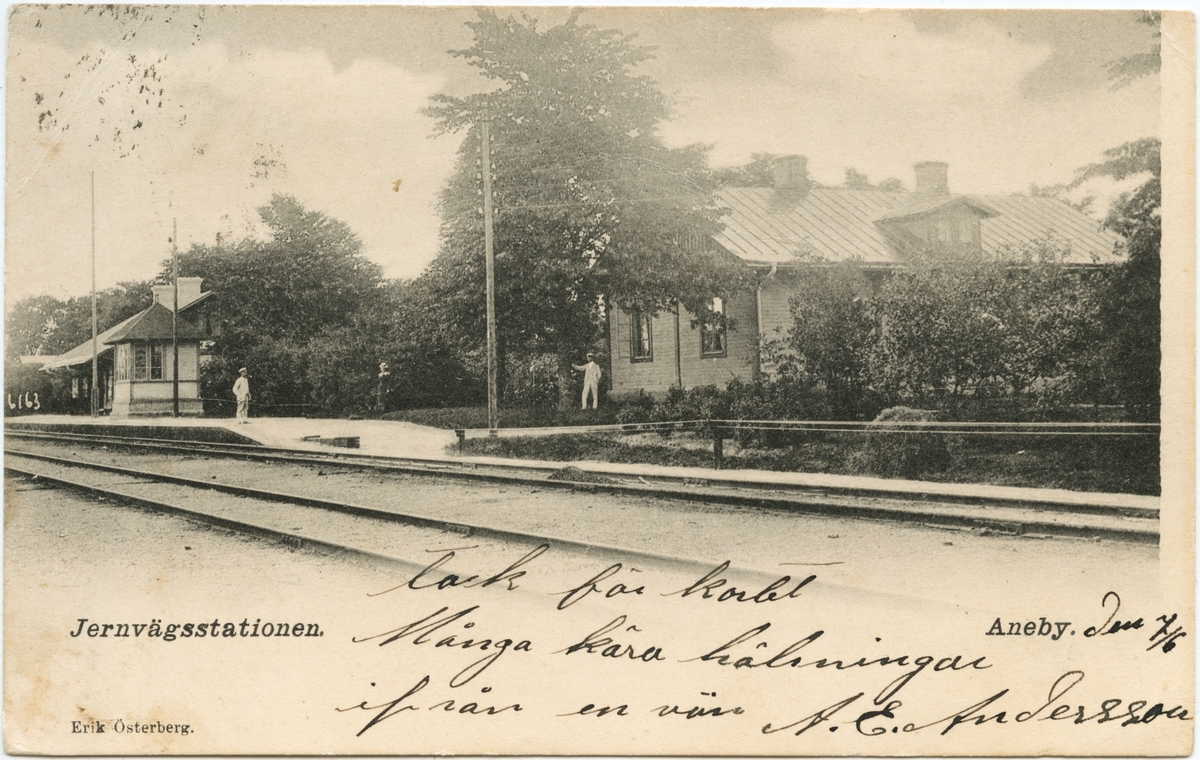 6163
Tack för kortet
Jernvägsstationen.
Aneby. Den 7/6
Många kära hälsningar
ifrån en vän A. E. Andersson
Erik Österberg.